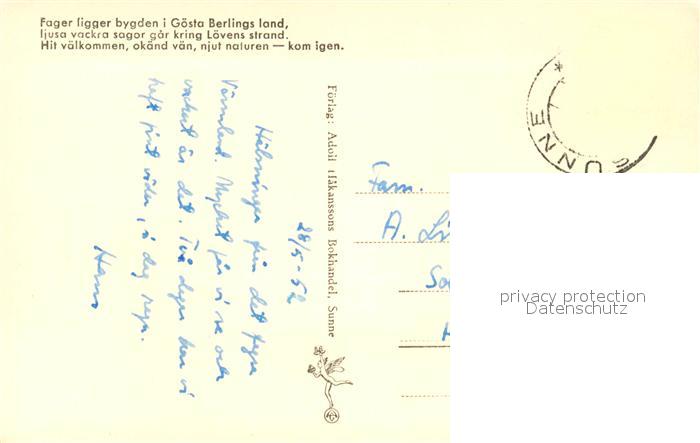 Fager ligger bygden i Gösta Berlings land,
ljusa vackra sagor går kring Lövens strand.
Hit välkommen, okänd vän, njut naturen — kom igen.
28/5-52
Hälsningar från det fagra
Värmland. Mycket får vi se och
vackert är det. Två dagar har vi
haft fint väder, i dag regn.
Hans
Förlag: Adolf Håkanssons Bokhandel, Sunne
SUNNE
Fam.
A.
privacy protection
Datenschutz